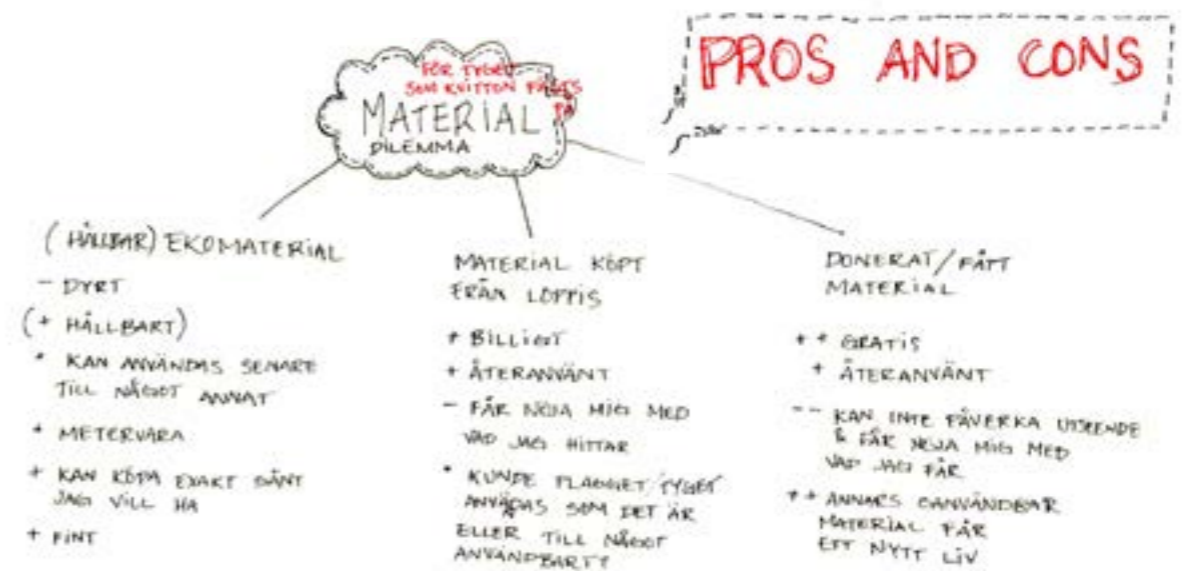 PROS AND CONS
FÖR TYGET
SOM KVITTON FÄSTS
PÅ
MATERIAL
DILEMMA
(HÅLLBAR) EKOMATERIAL
- DYRT
(+ HÅLLBART)
* KAN ANVÄNDAS SENARE
TILL NÅGOT ANNAT
+ METERVARA
+ KAN KÖPA EXAKT SÅNT
JAG VILL HA
+ FINT
MATERIAL KÖPT
FRÅN LOPPIS
+ BILLIGT
+ ÅTERANVÄNT
- FÅR NÖJA MIG MED
VAD JAG HITTAR
* KUNDE PLAGGET/TYGET
ANVÄDAS SOM DET ÄR
ELLER TILL NÅGOT
ANVÄNDBART?
DONERAT/FÅTT
MATERIAL
++ GRATIS
+ ÅTERANVÄNT
-- KAN INTE PÅVERKA UTSEENDE
& FÅR NÖJA MIG MED
VAD JAG FÅR
++ ANNARS OANVÄNDBAR
MATERIAL FÅR
ETT NYTT LIV